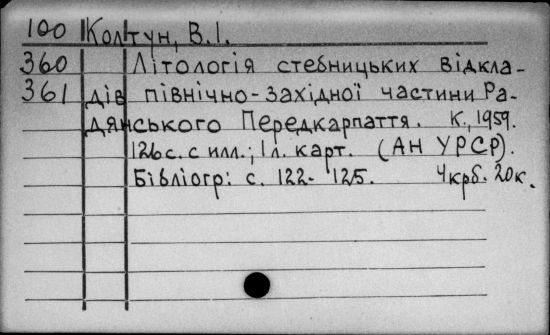 100 Колтун, В.І.
360 Літологія стебницьких відкла-
361 дів північно-західної частини Ра-
дянського Передкарпаття. К., 1959.
126 с. с илл.; 1 л. карт. (АН УРСР).
Бібліогр: с. 122- 125. 4 крб. 20 к.